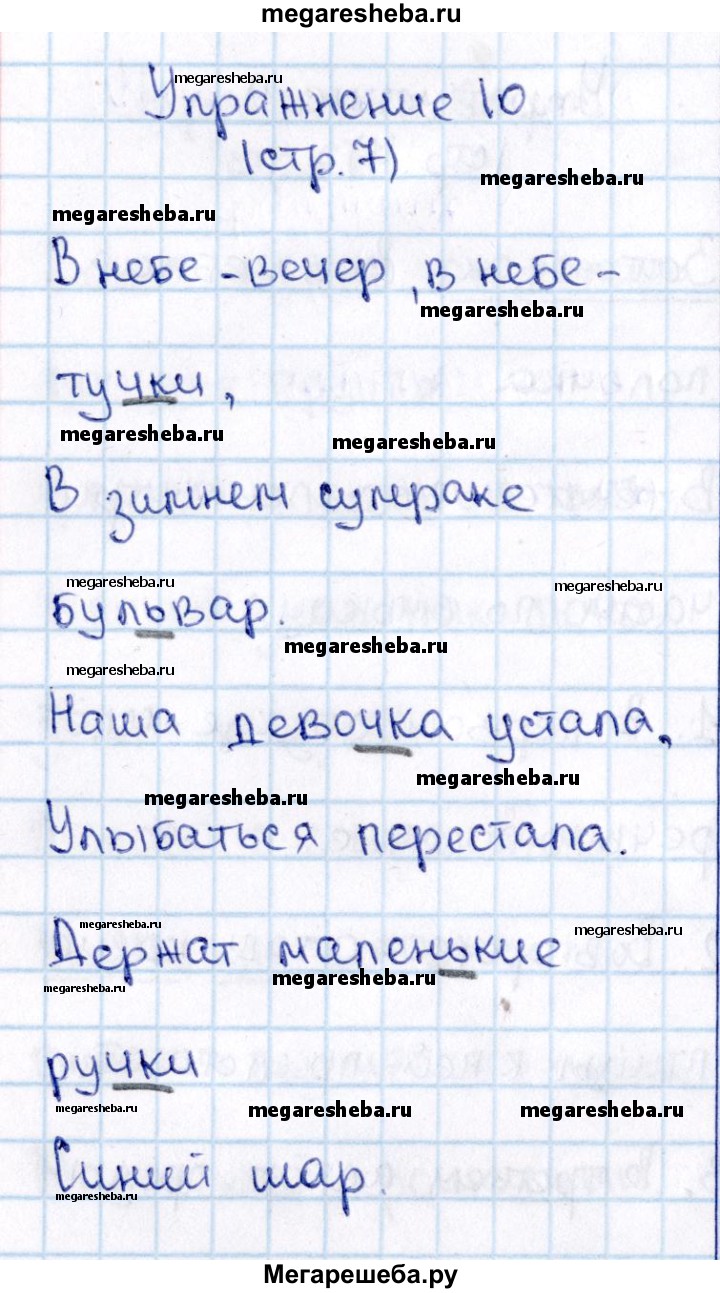 megaresheba.ru
megaresheba.ru
Упражнение 10
(стр. 7)
megaresheba.ru
megaresheba.ru
В небе - вечер, в небе -
megaresheba.ru
тучки,
megaresheba.ru
megaresheba.ru
В зимнем сумраке
megaresheba.ru
megaresheba.ru
бульвар.
megaresheba.ru
megaresheba.ru
Наша девочка устала,
megaresheba.ru
megaresheba.ru
Улыбаться перестала.
megaresheba.ru
megaresheba.ru
Держат маленькие
megaresheba.ru
megaresheba.ru
ручки
megaresheba.ru
megaresheba.ru
megaresheba.ru
Синий шар.
megaresheba.ru
Мегарешеба.ру